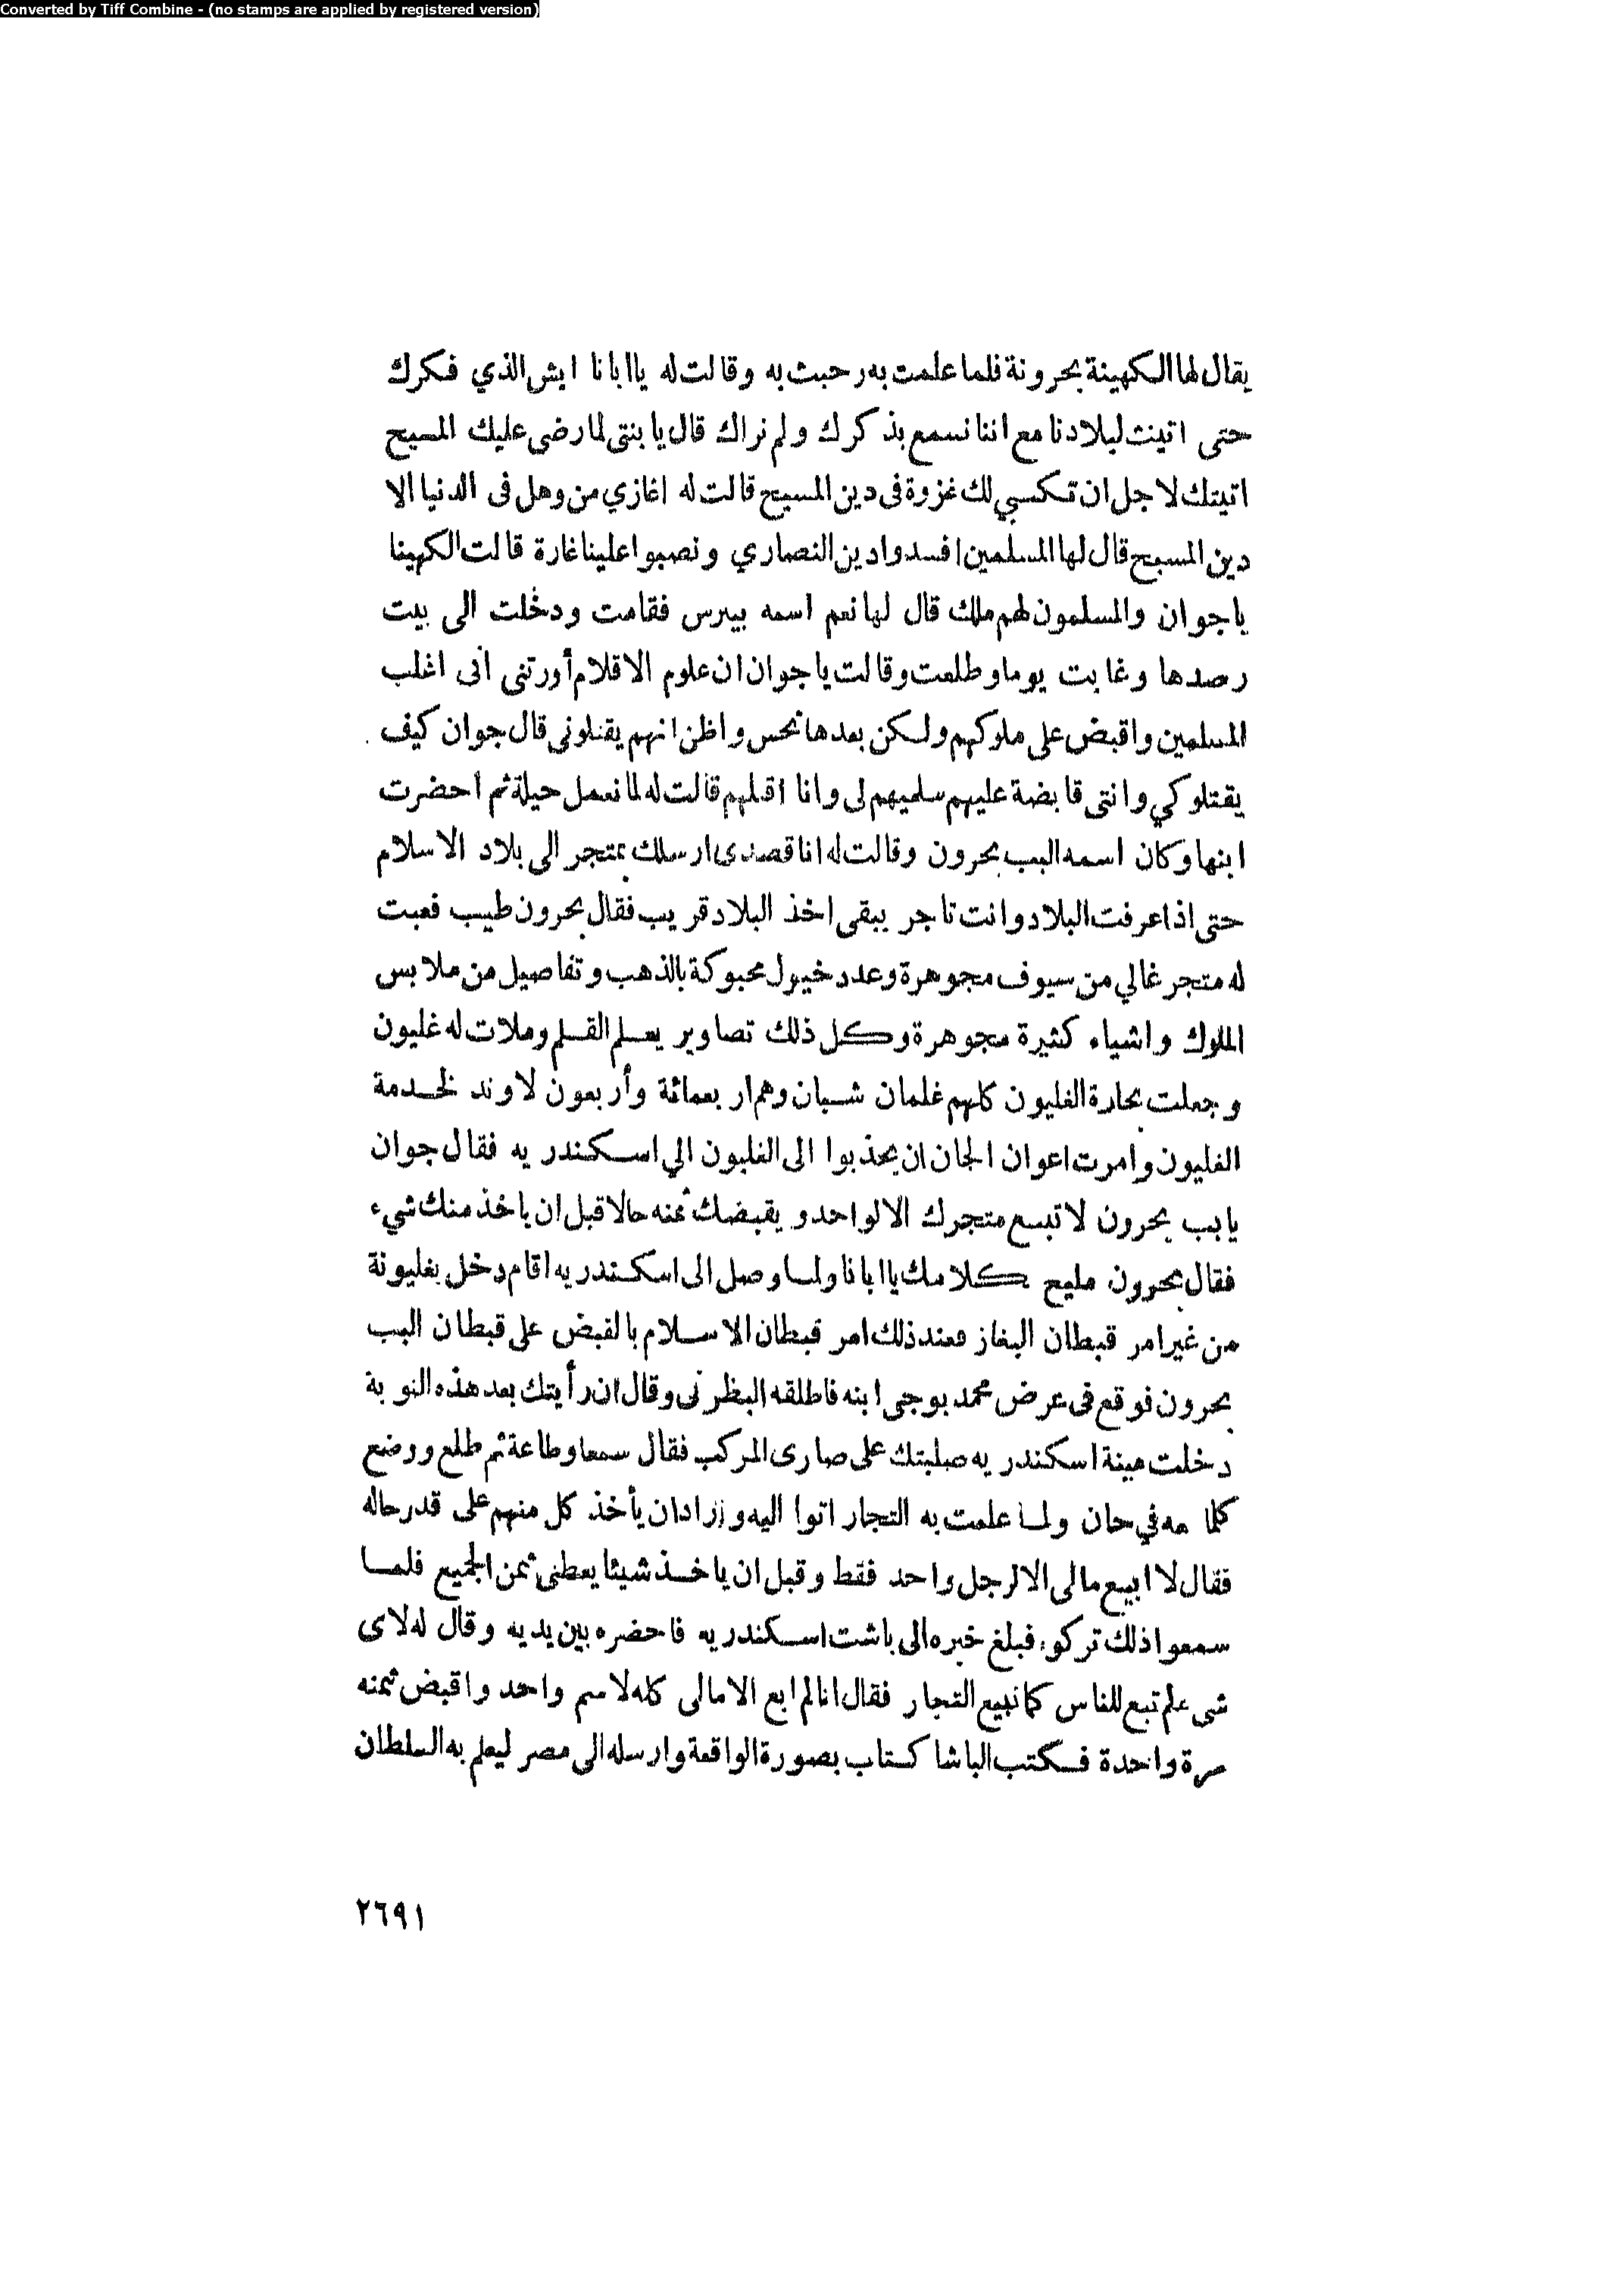 Converted by Tiff Combine - (no stamps are applied by registered version)
يقال لها الكهينة بحرونة فلما علمت به رحبت به وقالت له يا ابانا ايش الذي فكرك
حتى اتيت لبلادنا مع اننا نسمع بذكرك ولم نراك قال يا بنتى لما رضى عليك المسيح
اتيتك لاجل ان تكسبي لك غزوة فى دين المسيح قالت له اغازي من وهل فى الدنيا الا
دين المسيح قال لها المسلمين افسدوا دين النصاري ونصبوا علينا غارة قالت الكهينا
يا جوان والمسلمون لهم ملك قال لها نعم اسمه بيبرس فقامت ودخلت الى بيت
رصدها وغابت يوما وطلعت وقالت يا جوان ان علوم الاقلام أورتنى أنى اغلب
المسلمين واقبض على ملوكهم ولكن بعدها نحس واظن انهم يقتلونى قال جوان كيف
يقتلوكي وانتى قابضة عليهم سلميهم لى وانا اقتلهم قالت له لما نعمل حيلة ثم احضرت
ابنها وكان اسمه البب بحرون وقالت له انا قصدى ارسلك بمتجر الى بلاد الاسلام
حتى اذا عرفت البلاد وانت تاجر يبقى اخذ البلاد قريب فقال بحرون طيب فعبت
له متجر غالي من سيوف مجوهرة وعدد خيول محبوكة بالذهب وتفاصيل من ملابس
الملوك واشياء كثيرة مجوهرة وكل ذلك تصاوير بعلم القلم وملات له غليون
وجعلت بحارة الغليون كلهم غلمان شبان وهم اربعمائة وأربعون لاوند لخدمة
الغليون وامرت اعوان الجان ان يجذبوا الى الغليون الي اسكندريه فقال جوان
يا بب بحرون لا تبع متجرك الا لواحد ويقبضك ثمنه حالا قبل ان ياخذ منك شيء
فقال بحرون مليح كلامك يا ابانا ولما وصل الى اسكندريه اقام دخل بغليونة
من غير امر قبطان البغاز فعند ذلك امر قبطان الاسلام بالقبض على قبطان البب
بحرون فوقع فى عرض محمد بوجى ابنه فاطلقه البظرنى وقال ان رأيتك بعد هذه النوبة
دخلت مينة اسكندريه صلبتك على صارى المركب فقال سمعا وطاعة ثم طلع ووضع
كلما معه في حان ولما علمت به التجار اتوا اليه وزادان يأخذ كل منهم على قدر حاله
فقال لا ابيع مالى الا لرجل واحد فقط وقبل ان ياخذ شيئا يعطنى ثمن الجميع فلما
سمعوا ذلك تركوه فبلغ خبره الى باشت اسكندريه فاحضره بين يديه وقال له لاى
شىء لم تبع للناس كما تبيع التجار فقال انا لم ابع الا مالى كله لاسم واحد واقبض ثمنه
مرة واحدة فكتب الباشا كتاب بصورة الواقعة وارسله الى مصر ليعلم به السلطان
٢٦٩١